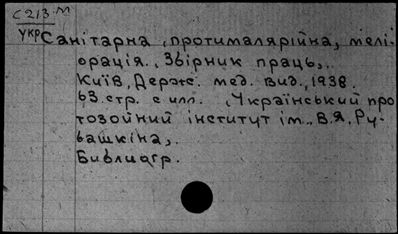 С213.М
укр
Санітарна, протималярійна, мелі-
орація. Збірник праць,..
Київ, Держ. мед. вид., 1938.
63 стр. с илл. , Український про
тозойний інститут ім. В.Я. Ру-
башкіна,.
Библиогр.